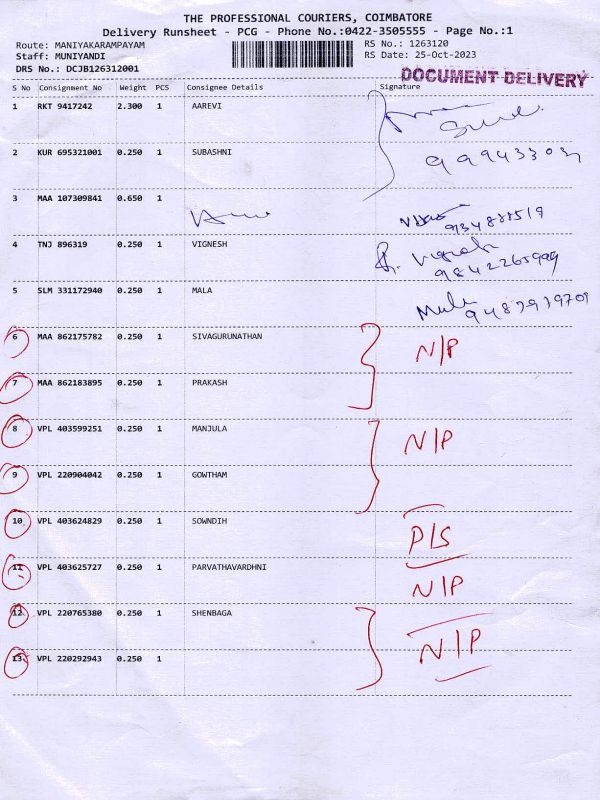 THE PROFESSIONAL COURIERS, COIMBATORE
Delivery Runsheet - PCG - Phone No.:0422-3505555 - Page No.:1
Route: MANIYAKARAMPAYAM RS No.: 1263120
Staff: MUNIYANDI RS Date: 25-Oct-2023
DRS No.: DCJB126312001
DOCUMENT DELIVERY
S No Consignment No Weight PCS Consignee Details Signature
1 RKT 9417242 2.300 1 AAREVI
2 KUR 695321001 0.250 1 SUBASHNI
3 MAA 107309841 0.650 1
4 TNJ 896319 0.250 1 VIGNESH Vignesh
5 SLM 331172940 0.250 1 MALA Mala
6 MAA 862175782 0.250 1 SIVAGURUNATHAN N/P
7 MAA 862183895 0.250 1 PRAKASH
8 VPL 403599251 0.250 1 MANJULA N/P
9 VPL 220904042 0.250 1 GOWTHAM
10 VPL 403624829 0.250 1 SOWNDIH P/S
11 VPL 403625727 0.250 1 PARVATHAVARDHNI N/P
12 VPL 220765380 0.250 1 SHENBAGA N/P
13 VPL 220292943 0.250 1